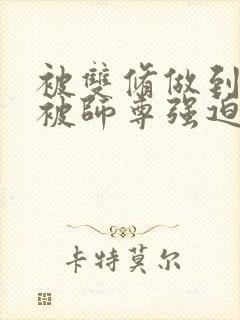 被雙脩做到
被師尊强迫
卡特莫尔